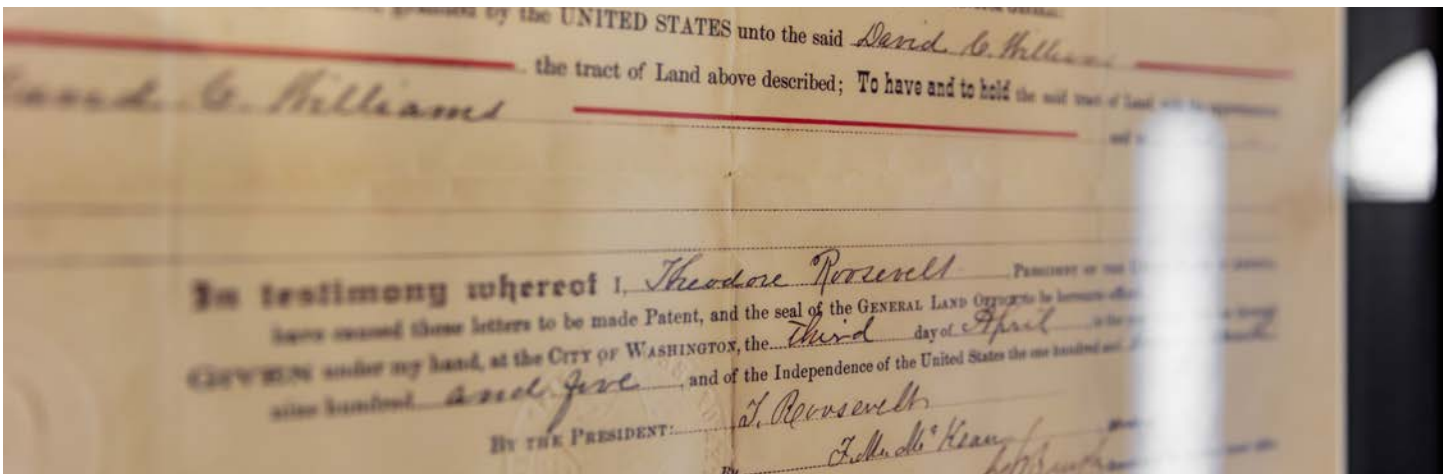 granted by the UNITED STATES unto the said David C. Williams
the tract of Land above described; To have and to hold the said tract of Land, with the appurtenances
David C. Williams
In testimony whereof I, Theodore Roosevelt, PRESIDENT OF THE
have caused these letters to be made Patent, and the seal of the GENERAL LAND OFFICE to be hereunto
GIVEN under my hand, at the CITY OF WASHINGTON, the third day of April, in the
nine hundred and five, and of the Independence of the United States the one hundred and
BY THE PRESIDENT: T. Roosevelt
By F. M. McKean